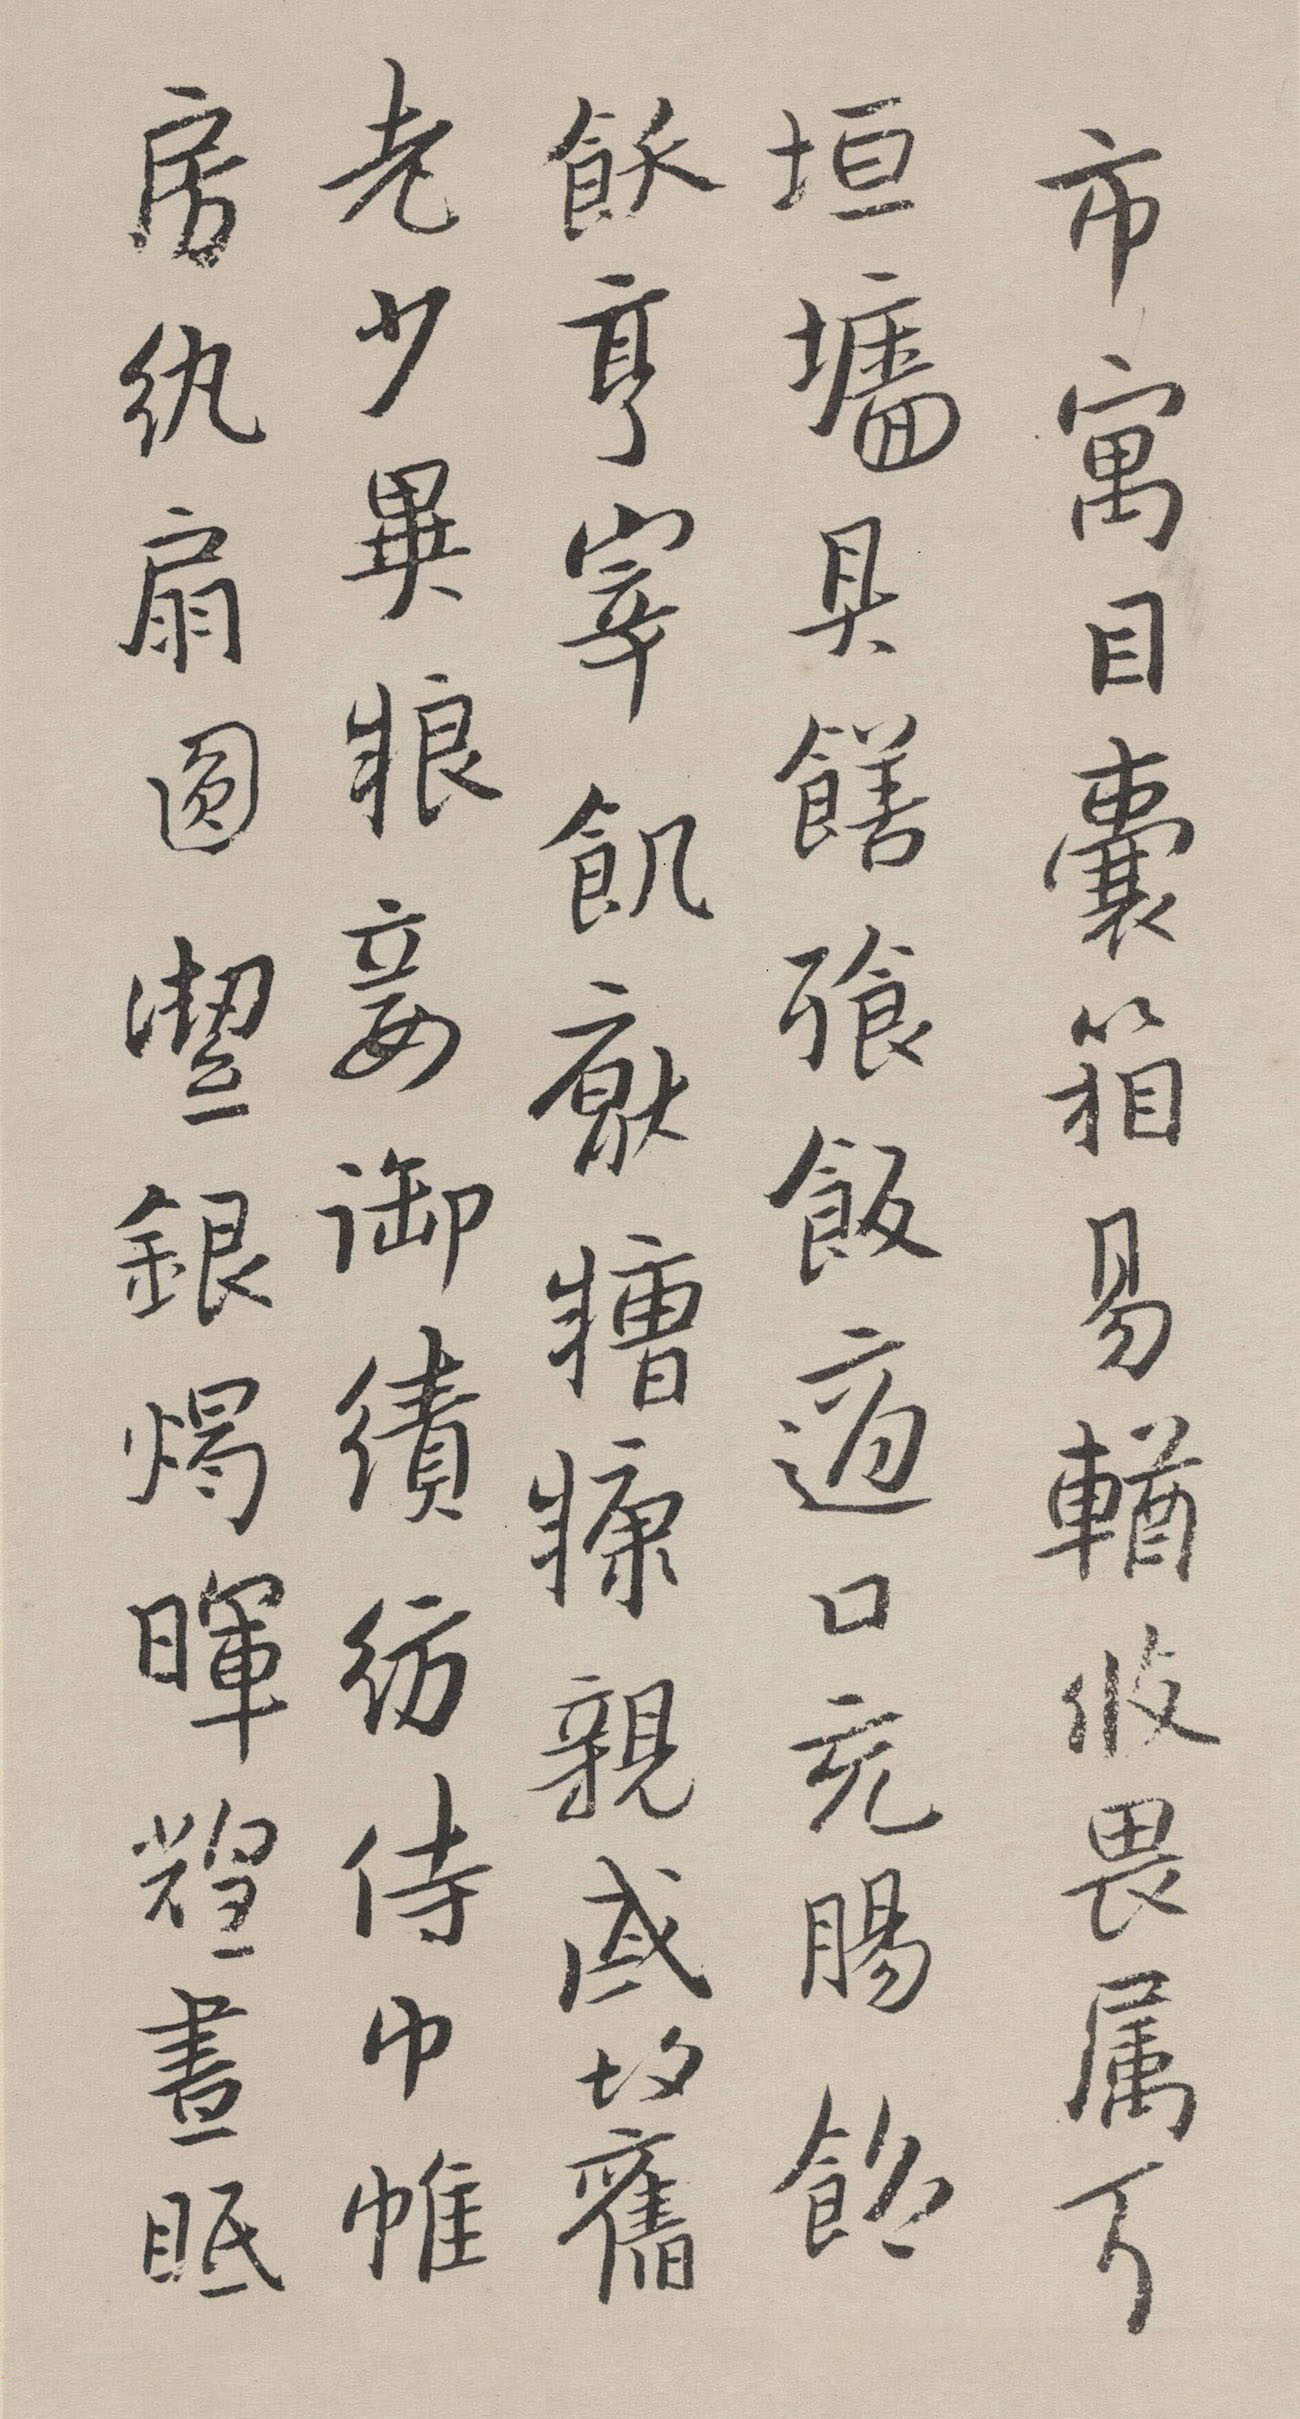 市寓目囊箱易輶攸畏属耳
垣墻具饍飡飯適口充腸飽
飫亨宰飢厭糟糠親戚故舊
老少異粮妾御績紡侍巾帷
房紈扇圎潔銀燭暐煌晝眠